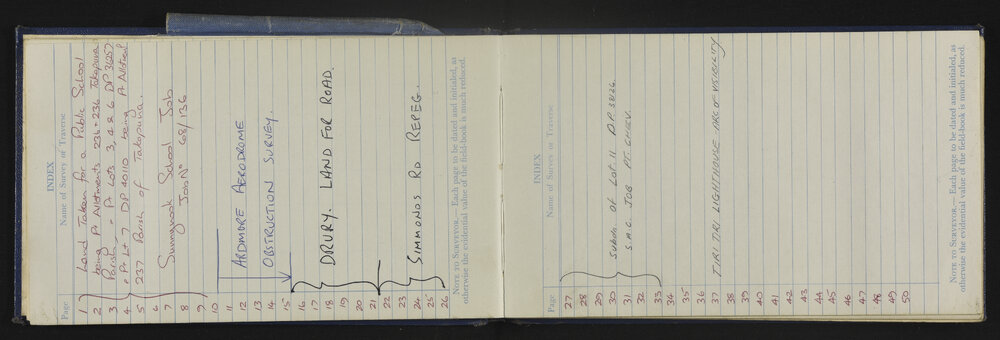 INDEX
Page Name of Survey or Traverse
1 Land Taken for a Public School
2 being Pt Allotments 236 + 236 Takapuna
3 Parish - Pt Lots 3, 4 & 6 DP
4 & Pt Lt 7 DP 40110 being Pt Allotment
5 237 Parish of Takapuna.
6
7 Sunnynook School Job
8 Job No 68/136
9
10
11
12 ARDMORE AERODROME
13
14 OBSTRUCTION SURVEY.
15
16
17
18 DRURY. LAND FOR ROAD.
19
20
21
22
23
24 SIMMONDS RD REPEG.
25
26
NOTE TO SURVEYOR.— Each page to be dated and initialed, as
otherwise the evidential value of the field-book is much reduced.
INDEX
Page Name of Survey or Traverse
27
28
29
30 SUBDN OF LOT 11 D.P.
31 S.A.G. JOB PT. CHEV.
32
33
34
35
36
37 TIRI TIRI LIGHTHOUSE ARC OF VISIBILITY
38
39
40
41
42
43
44
45
46
47
48
49
50
NOTE TO SURVEYOR.— Each page to be dated and initialed, as
otherwise the evidential value of the field-book is much reduced.